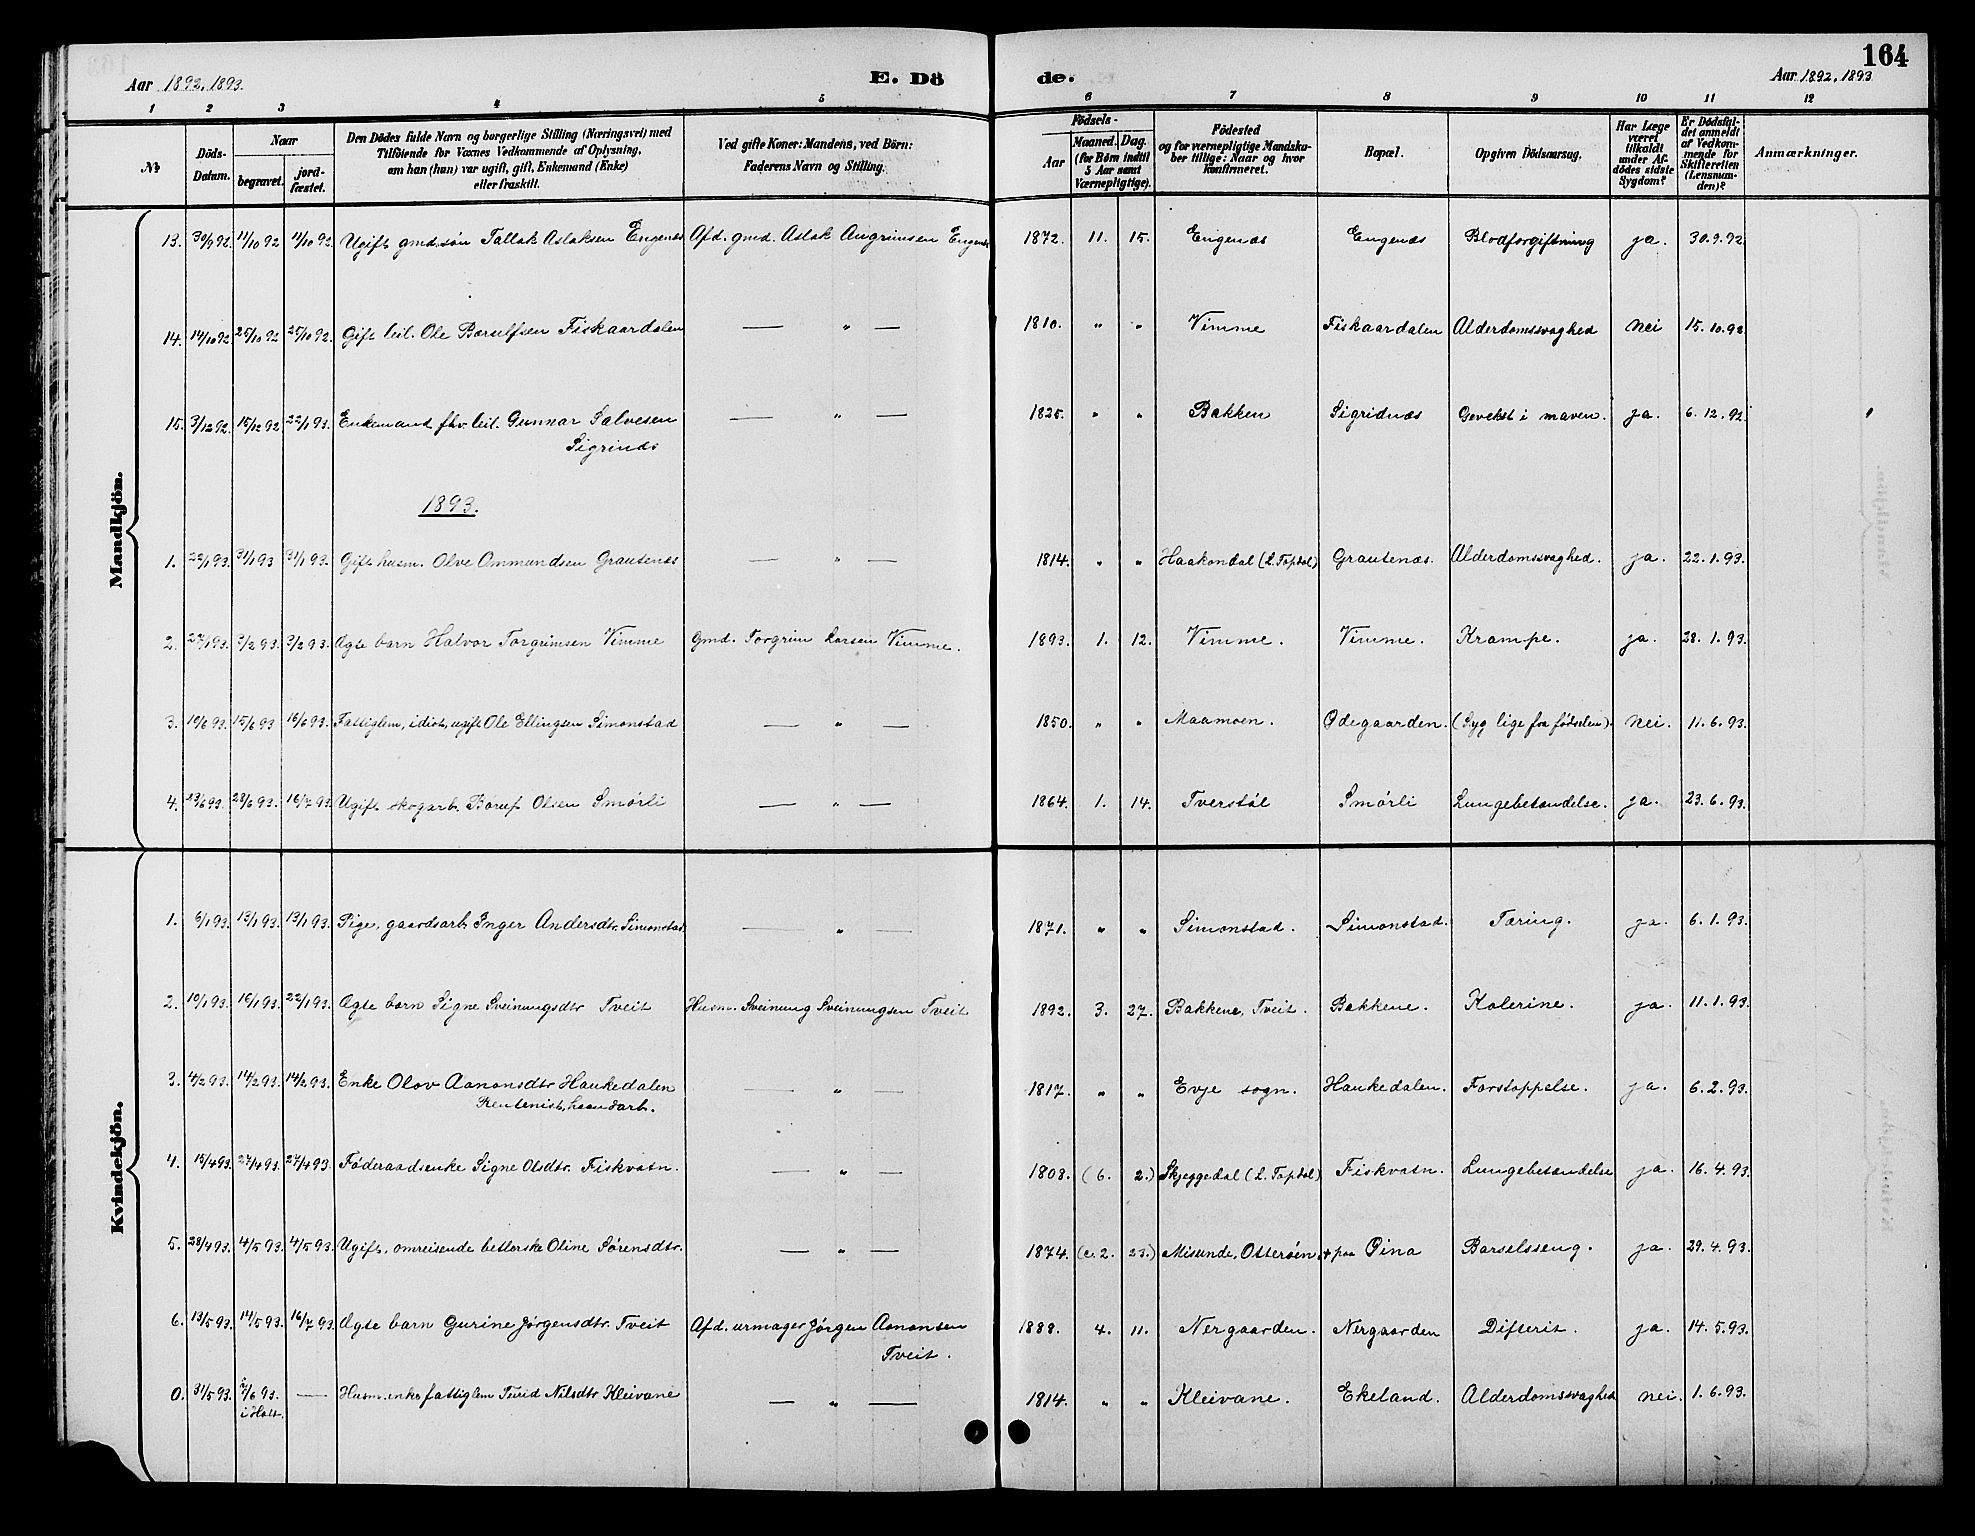 164
Aar 1892, 1893.
E. Dö
de.
Aar 1892, 1893
1 2 3 4 5 6 7 8 9 10 11 12
№
Döds-Datum.
Naar
begravet.
jord-fæstet.
Den Dödes fulde Navn og borgerlige Stilling (Næringsvei) med
Tilföiende for Voxnes Vedkommende af Oplysning,
om han (hun) var ugift, gift, Enkemand (Enke)
eller fraskilt.
Ved gifte Koner: Mandens, ved Börn:
Faderens Navn og Stilling.
Födsels-
Aar
Maaned.
Dag.
(for Börn indtil
5 Aar samt
Værnepligtige).
Födested
og for værnepligtige Mandska-
ber tillige: Naar og hvor
konfirmeret.
Bopæl.
Opgiven Dödsaarsag.
Har Læge
været
tilkaldt
under Af-
dödes sidste
Sygdom?
Er Dödsfal-
det anmeldt
af Vedkom-
mende for
Skifteretten
(Lensman-
den)?
Anmærkninger.
Mandkjön.
13. 30/9 92. 11/10 92 11/10 92. Ugift gmd.søn Tallak Aslaksen Engenæs Afd. gmd. Aslak Angrimsen Engenæs 1872. 11. 15. Engenæs Engenæs Blodforgiftning ja. 30.9.92
14. 14/10 92 25/10 92 25/10 92. Gift leil. Ole Børselfsen Fiskaardalen — „ — 1810. „ „ Vimme Fiskaardalen Alderdomssvaghed nei 15.10.92
15. 3/12 92. 15/12 92 22/1 93. Enkemand fhv. leil. Gunnar Salvesen — „ — 1825. „ „ Bakken Sigridnæs Gevekst i maven. ja. 6.12.92.
Sigrinæs
1893.
1. 22/1 93. 31/1 93 31/1 93. Gift husm. Olve Ommundsen Grautenæs — „ — 1814. „ „ Haakondal (L. Topdal) Grautenæs. Alderdomssvaghed. ja. 22.1.93.
2. 27/1 93. 3/2 93. 3/2 93. Ægte barn Halvor Torgrimsen Vimme Gmd. Torgrim Larsen Vimme. 1893. 1. 12. Vimme. Vimme. Krampe. ja. 28.1.93.
3. 10/6 93. 15/6 93 16/6 93. Fattiglem, idiot, ugift Ole Ellingsen Simonstad — „ — 1850. „ „ Maamoen. Ødegaarden. (Syg lige fra fødselen). nei. 11.6.93.
4. 23/6 93. 28/6 93. 16/7 93. Ugift skogarb. Børuf Olsen Smørli — „ — 1864. 1. 14. Tverstøl Smørli Lungebetændelse. ja. 23.6.93.
Kvindekjön.
1. 6/1 93. 13/1 93. 13/1 93. Pige, gaardsarb. Inger Andersdtr. Simonstad. — „ — 1871. „ „ Simonstad. Simonstad. Tæring. ja. 6.1.93.
2. 10/1 93. 16/1 93. 22/1 93. Ægte barn Signe Sveinungsdtr Tveit Husm. Sveinung Sveinungsen Tveit 1892. 3. 27. Bakkene, Tveit. Bakkene. Kolerine. ja. 11.1.93.
3. 4/2 93. 14/2 93. 14/2 93. Enke Olov Aanonsdtr Haukedalen — „ — 1817. „ „ Evje sogn. Haukedalen. Forstoppelse. ja. 6.2.93.
Rentenist, haandarb.
4. 15/4 93. 27/4 93. 27/4 93. Føderaadsenke Signe Olsdtr. Fiskvatn. — „ — 1808. (6. 2.) Skjeggedal (L. Topdal) Fiskvatn. Lungebetændelse ja. 16.4.93.
5. 28/4 93. 4/5 93. 4/5 93. Ugift, omreisende betlerske Oline Sørensdtr. — „ — 1874. (c. 2. 23.) Misunde, Otterøen. + paa Øina Barselsseng. ja. 29.4.93.
6. 13/5 93. 14/5 93. 16/7 93. Ægte barn Gurine Jørgensdtr. Tveit Afd. urmager Jørgen Aanonsen 1888. 4. 11. Nergaarden. Nergaarden Difterit. ja. 14.5.93.
Tveit.
0. 31/5 93. 2/6 93. — Husm.enke fattiglem Turid Nilsdtr Kleivane — „ — 1814. „ „ Kleivane. Ekeland. Alderdomssvaghed nei. 1.6.93.
i Holt.